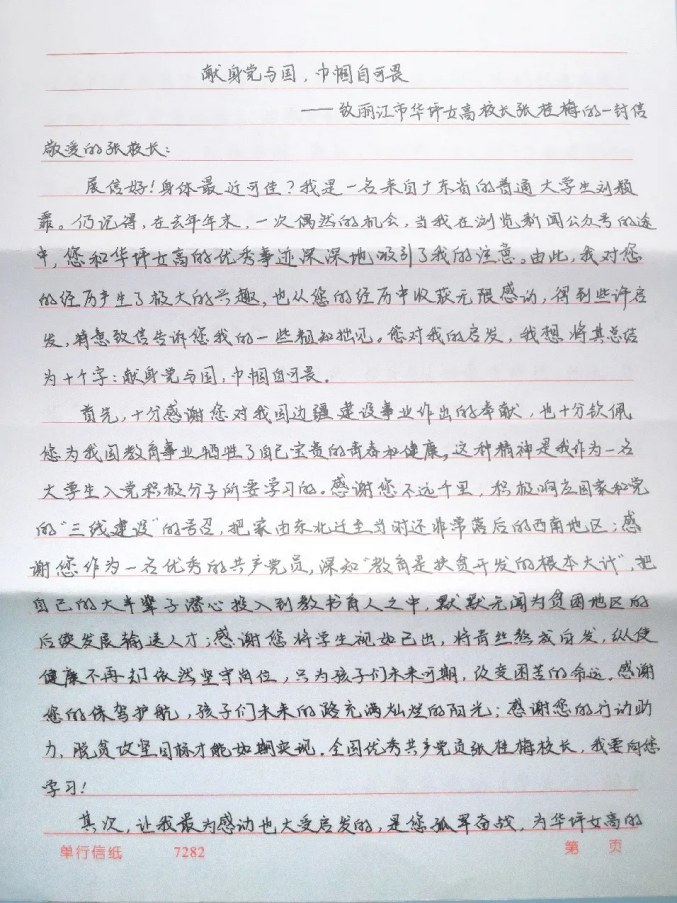 献身党与国，巾帼自可畏
——致丽江市华坪女高校长张桂梅的一封信
敬爱的张校长：
展信好！身体最近可佳？我是一名来自广东省的普通大学生刘颖
霏。仍记得，在去年年末，一次偶然的机会，当我在浏览新闻公众号的途
中，您和华坪女高的优秀事迹深深地吸引了我的注意。由此，我对您
的经历产生了极大的兴趣，也从您的经历中收获无限感动，得到些许启
发，特意致信告诉您我的一些粗知拙见。您对我的启发，我想将其总结
为十个字：献身党与国，巾帼自可畏。
首先，十分感谢您对我国边疆建设事业作出的奉献，也十分钦佩
您为我国教育事业牺牲了自己宝贵的青春和健康。这种精神是我作为一名
大学生入党积极分子所要学习的。感谢您不远千里，积极响应国家和党
的“三线建设”的号召，把家由东北迁至当时还非常落后的西南地区；感
谢您作为一名优秀的共产党员，深知“教育是扶贫开发的根本大计”，把
自己的大半辈子潜心投入到教书育人之中，默默无闻为贫困地区的
后续发展输送人才；感谢您将学生视如己出，将青丝熬成白发，纵使
健康不再却依然坚守岗位，只为孩子们未来可期，改变困苦的命运。感谢
您的保驾护航，孩子们未来的路充满灿烂的阳光；感谢您的行动助
力，脱贫攻坚目标才能如期实现。全国优秀共产党员张桂梅校长，我要向您
学习！
其次，让我最为感动也大受启发的，是您孤军奋战，为华坪女高的
单行信纸 7282 第 页